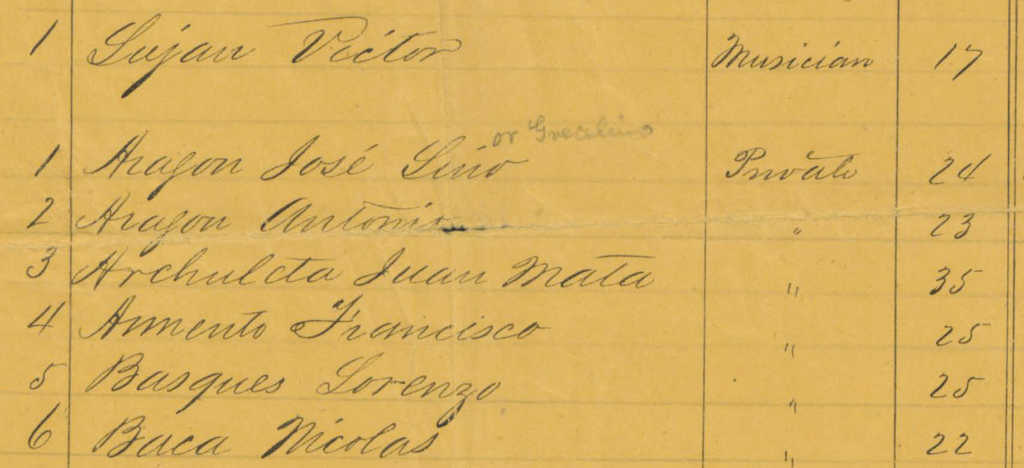 1 Lujan Victor Musician 17
or Grecelino
1 Aragon José Lino Private 24
2 Aragon Antonio " 23
3 Archuleta Juan Mata " 35
4 Armento Francisco " 25
5 Basques Lorenzo " 25
6 Baca Nicolas " 22